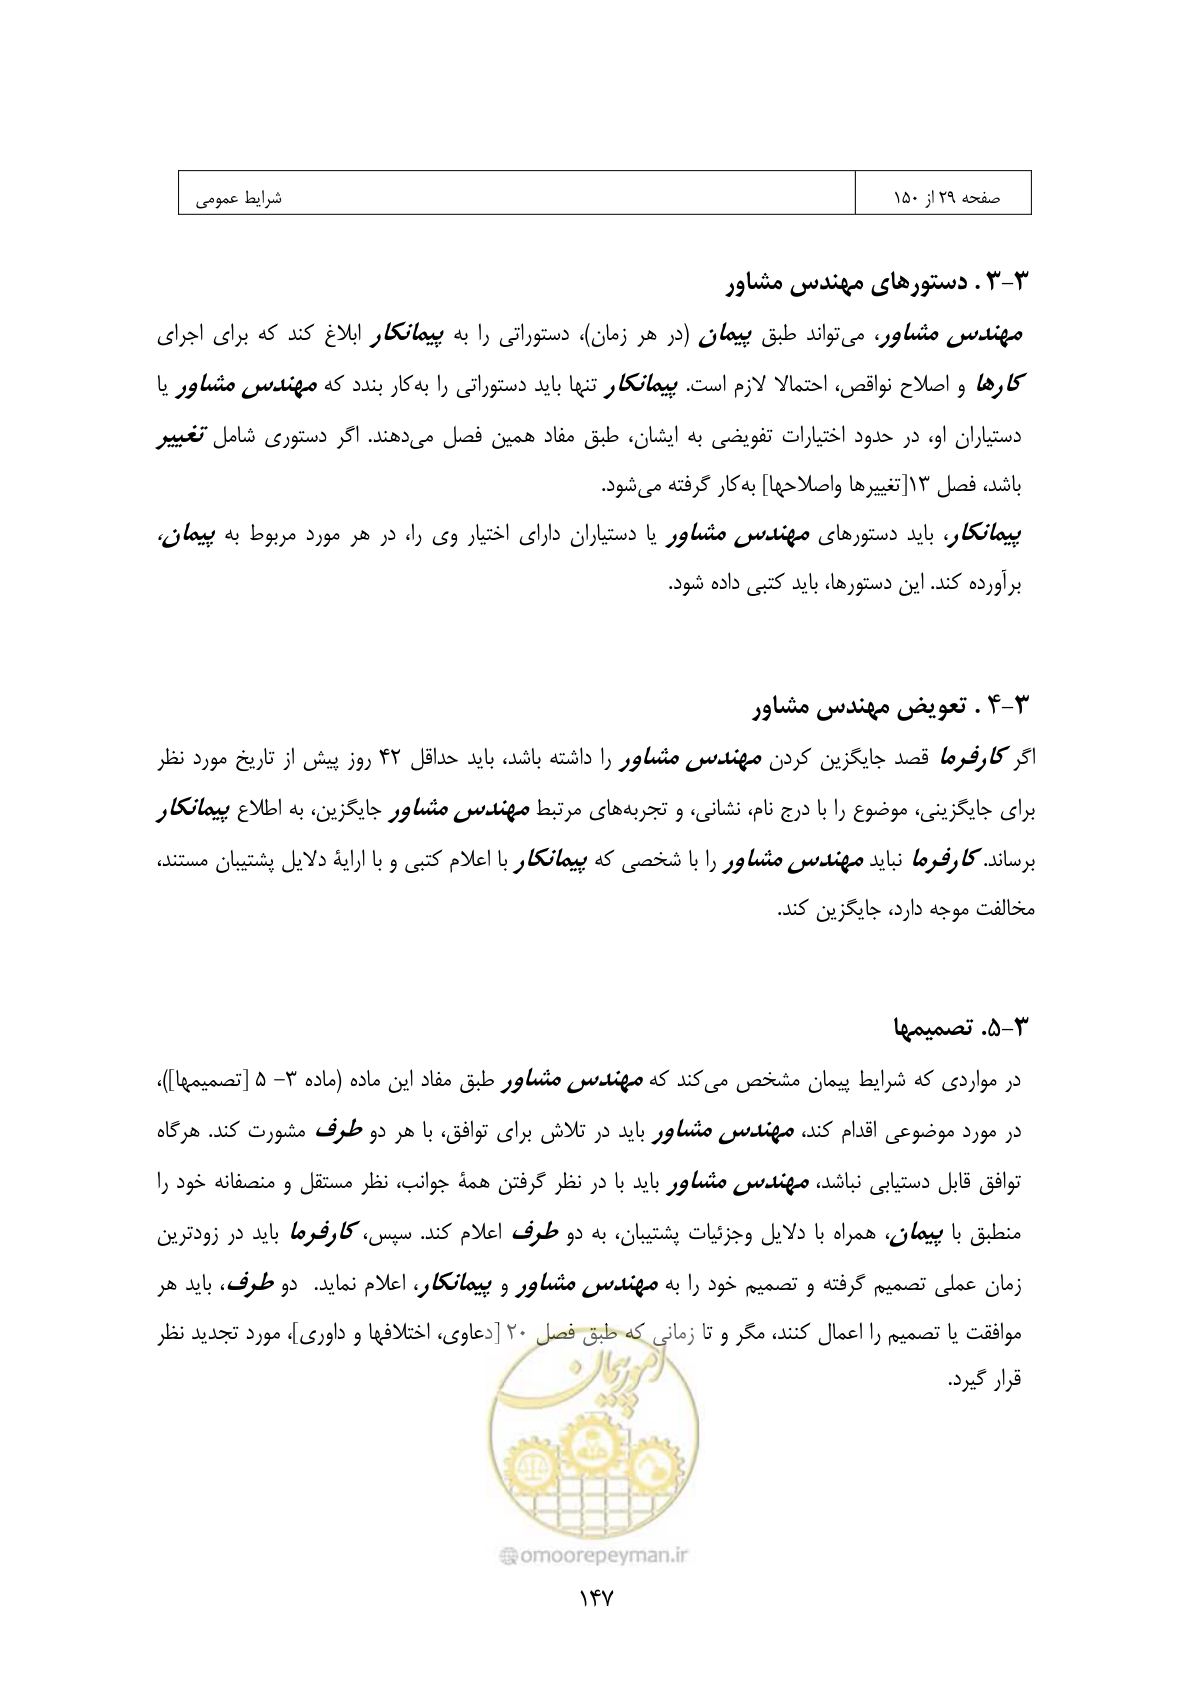 صفحه ۲۹ از ۱۵۰
شرایط عمومی
۳-۳ . دستورهای مهندس مشاور
مهندس مشاور، می‌تواند طبق پیمان (در هر زمان)، دستوراتی را به پیمانکار ابلاغ کند که برای اجرای
کارها و اصلاح نواقص، احتمالا لازم است. پیمانکار تنها باید دستوراتی را به‌کار بندد که مهندس مشاور یا
دستیاران او، در حدود اختیارات تفویضی به ایشان، طبق مفاد همین فصل می‌دهند. اگر دستوری شامل تغییر
باشد، فصل ۱۳[تغییرها واصلاحها] به‌کار گرفته می‌شود.
پیمانکار، باید دستورهای مهندس مشاور یا دستیاران دارای اختیار وی را، در هر مورد مربوط به پیمان،
برآورده کند. این دستورها، باید کتبی داده شود.
۳-۴ . تعویض مهندس مشاور
اگر کارفرما قصد جایگزین کردن مهندس مشاور را داشته باشد، باید حداقل ۴۲ روز پیش از تاریخ مورد نظر
برای جایگزینی، موضوع را با درج نام، نشانی، و تجربه‌های مرتبط مهندس مشاور جایگزین، به اطلاع پیمانکار
برساند. کارفرما نباید مهندس مشاور را با شخصی که پیمانکار با اعلام کتبی و با ارایۀ دلایل پشتیبان مستند،
مخالفت موجه دارد، جایگزین کند.
۳-۵. تصمیمها
در مواردی که شرایط پیمان مشخص می‌کند که مهندس مشاور طبق مفاد این ماده (ماده ۳- ۵ [تصمیمها])،
در مورد موضوعی اقدام کند، مهندس مشاور باید در تلاش برای توافق، با هر دو طرف مشورت کند. هرگاه
توافق قابل دستیابی نباشد، مهندس مشاور باید با در نظر گرفتن همۀ جوانب، نظر مستقل و منصفانه خود را
منطبق با پیمان، همراه با دلایل وجزئیات پشتیبان، به دو طرف اعلام کند. سپس، کارفرما باید در زودترین
زمان عملی تصمیم گرفته و تصمیم خود را به مهندس مشاور و پیمانکار، اعلام نماید. دو طرف، باید هر
موافقت یا تصمیم را اعمال کنند، مگر و تا زمانی که طبق فصل ۲۰ [دعاوی، اختلافها و داوری]، مورد تجدید نظر
قرار گیرد.
امور پیمان
omoorepeyman.ir
۱۴۷